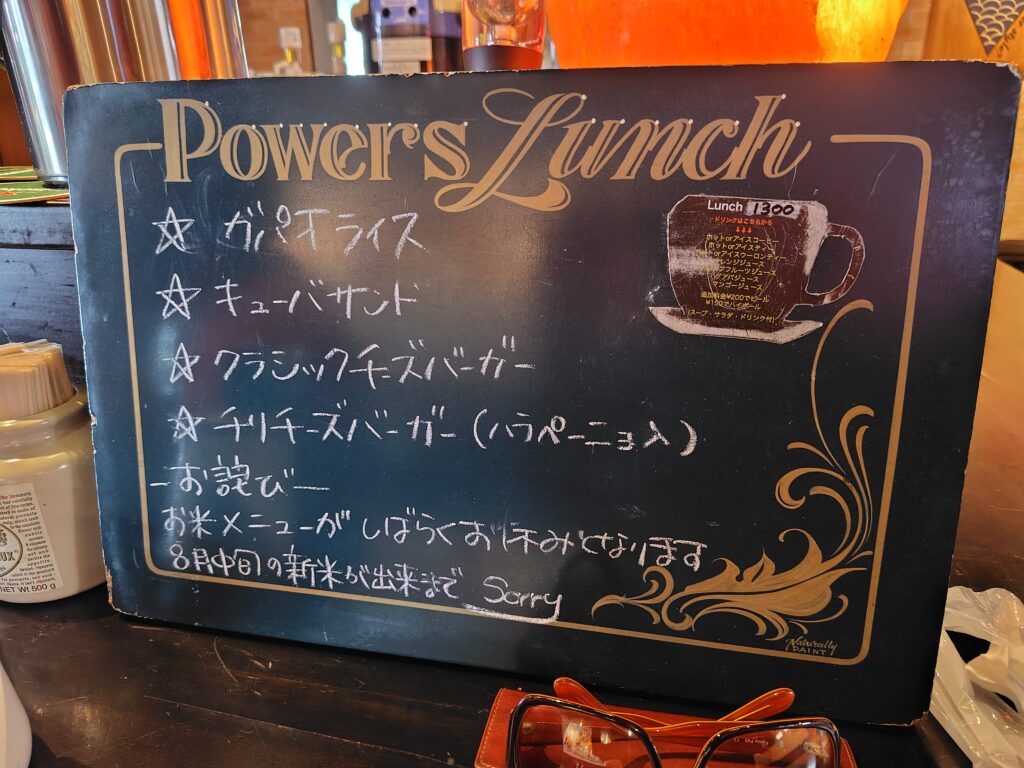 Powers Lunch
☆ ガパオライス
☆ キューバサンド
☆ クラシックチーズバーガー
☆ チリチーズバーガー(ハラペーニョ入)
-お詫び-
お米メニューがしばらくお休みとなります
8月中旬の新米が出来まで Sorry
Lunch 1300
ドリンクはこちらから
↓↓↓
ホットorアイスコーヒー
ホットorアイスティ
orアイスウーロンティー
レンジジュース
フルーツジュース
グァバジュース
マンゴージュース
追加料金¥200でビール
¥150でハイボール
(スープ・サラダ・ドリンク付)
Naturally
PAINT
NET Wt 500 g